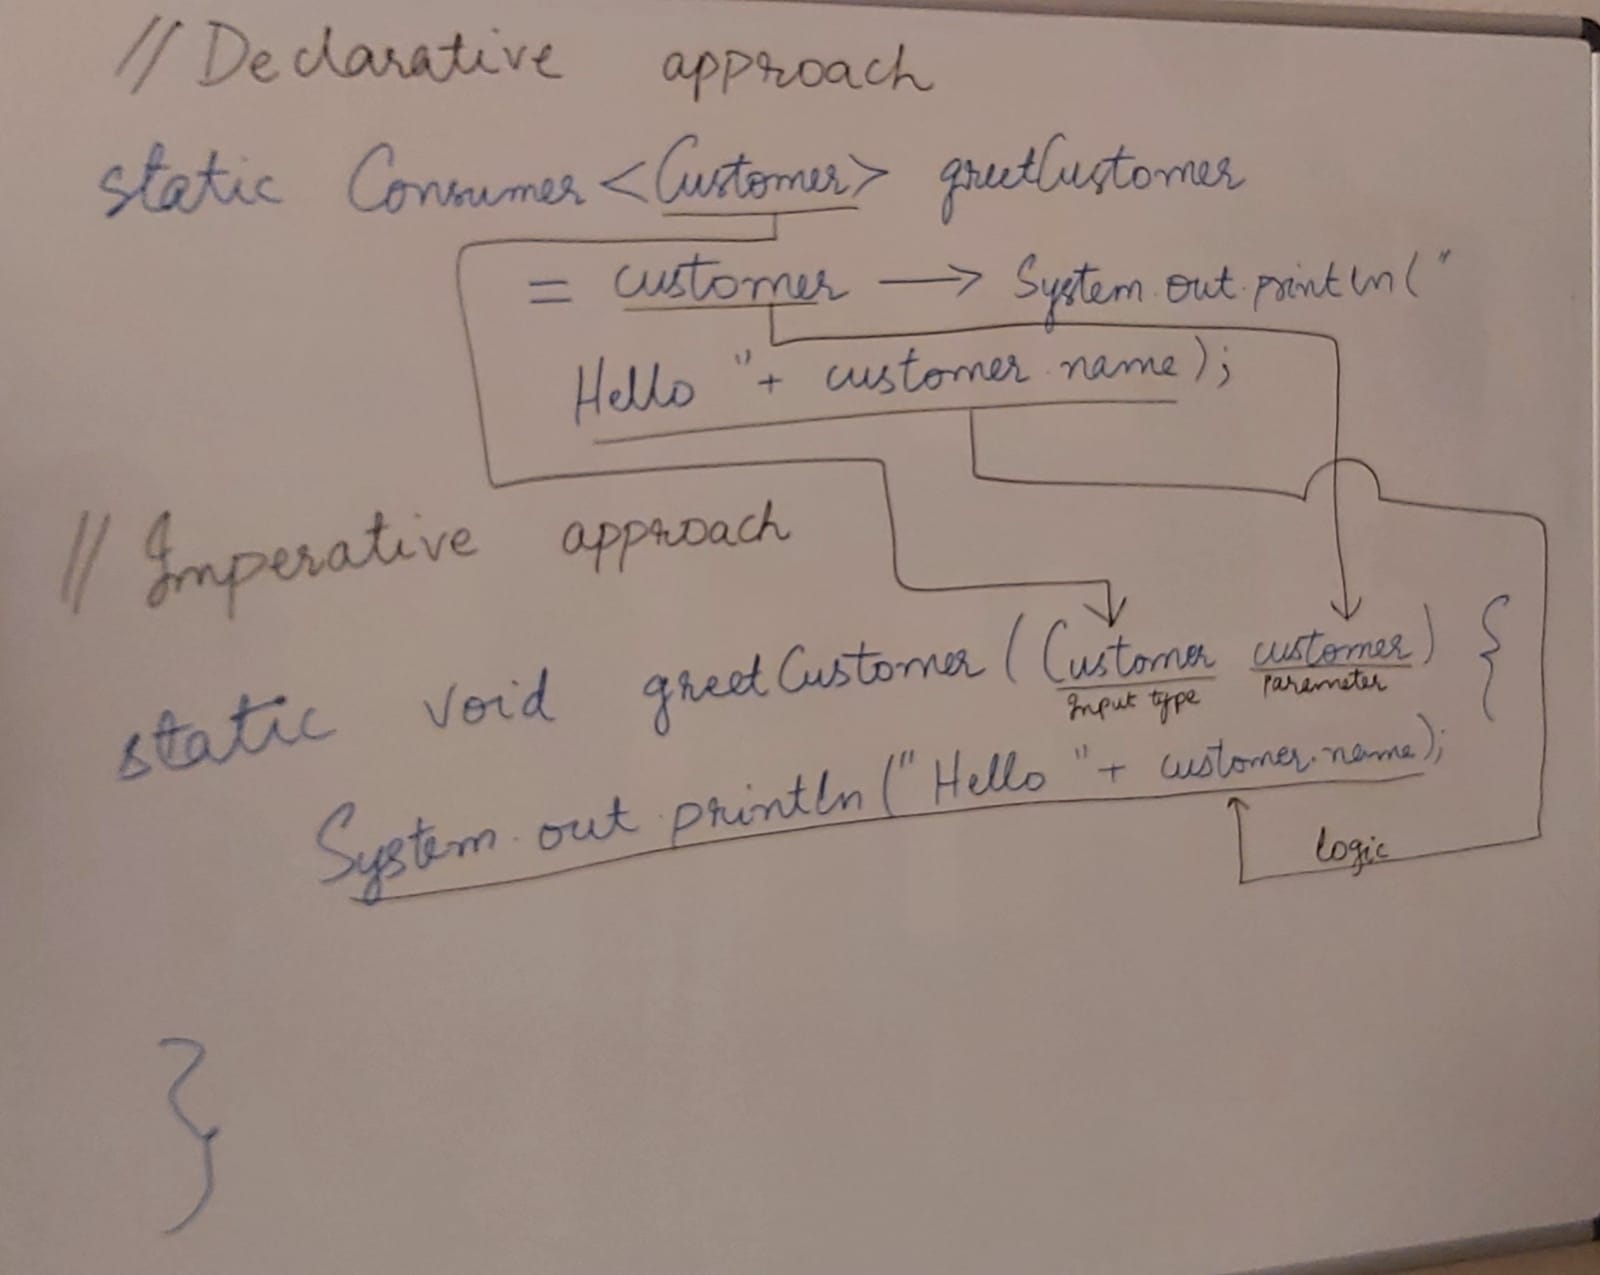 // Declarative approach
static Consumer <Customer> greetCustomer
= customer → System.out.println("
Hello "+ customer.name);
// Imperative approach
static void greetCustomer (Customer customer) {
Input type parameter
System.out.println("Hello "+ customer.name);
logic
}